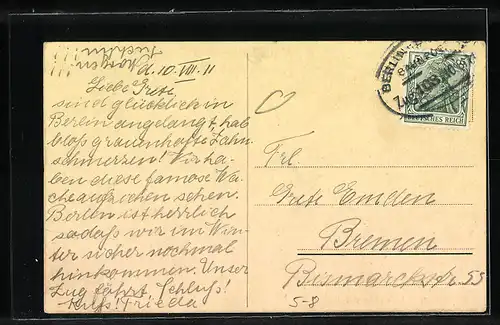 d. 10. VIII. 11
Liebe Grete
sind glücklich in
Berlin angelangt, hab
bloß grauenhafte Zahn
schmerzen! Wir ha-
ben diese famose Wa-
che aufziehen sehen.
Berlin ist herrlich
sodaß wir im Win-
ter sicher nochmal
hinkommen. Unser
Zug fährt. Schluß!
Frieda
BERLIN
DEUTSCHES REICH
Frl.
Grete Emden
Bremen
Bismarckstr. 53
5-8